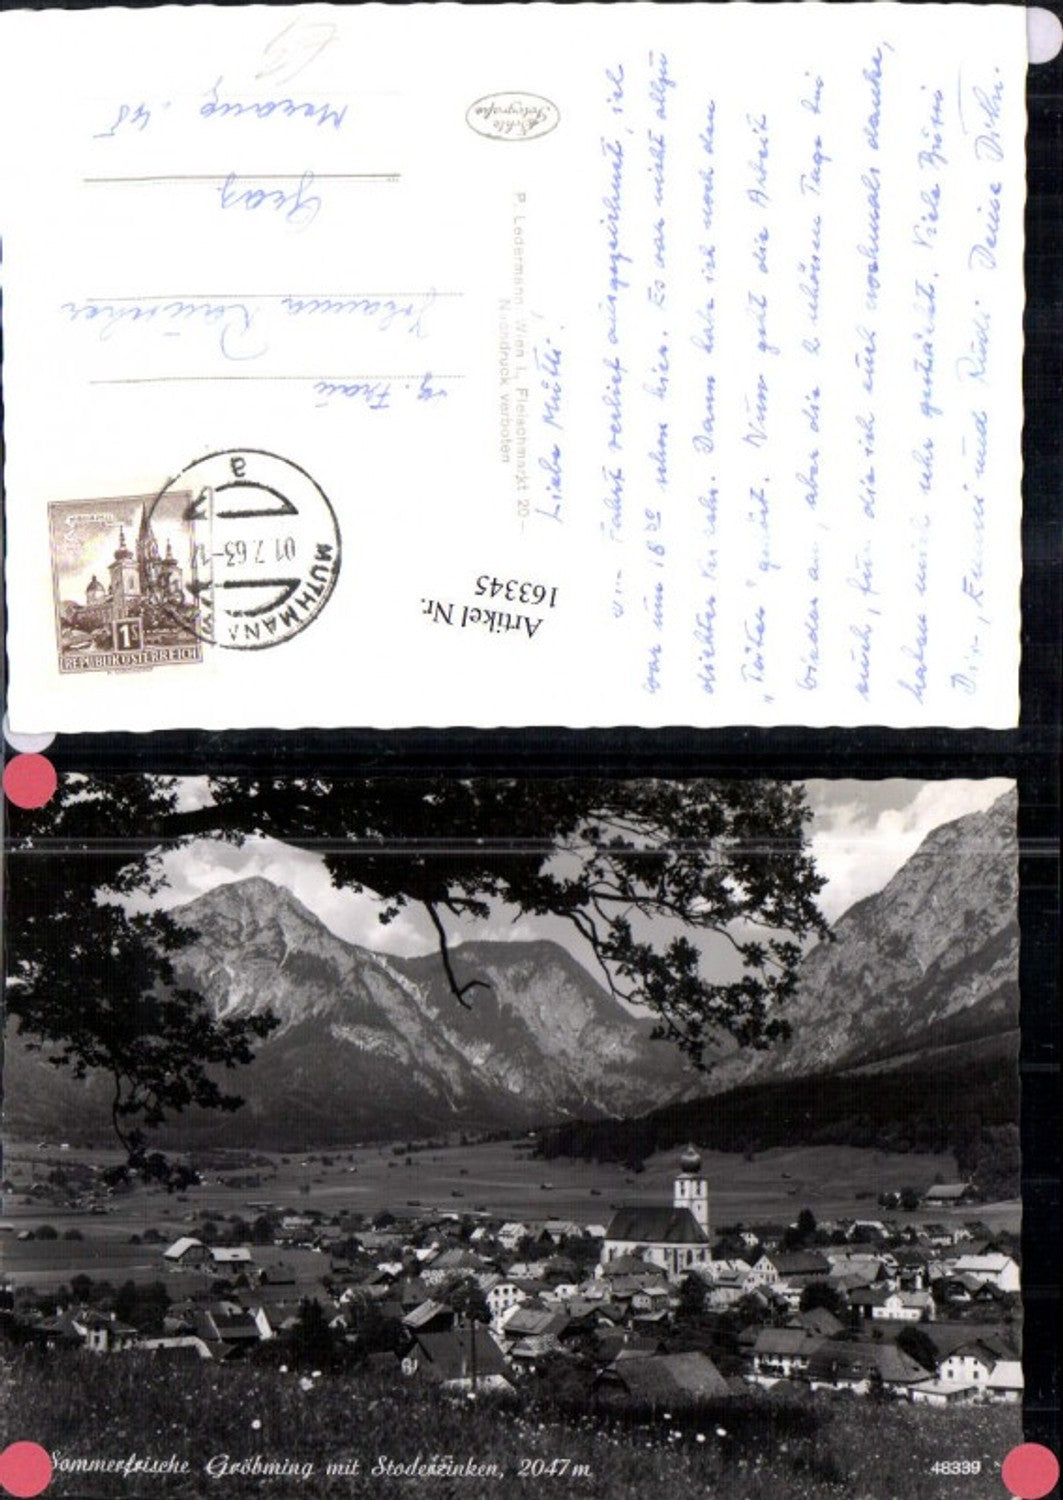 Liebe Mutti!
Fahrt verlief ausgezeichnet, ich
war um 16 30 schon hier. Es war nicht allzu
dichter Verkehr. Dann habe ich noch den
"Toten" gehört. Nun geht die Arbeit
wieder an, aber die 2 schönen Tage bei
euch, für die ich euch nochmals danke,
haben mich sehr gestärkt. Viele Bussi
Dir, und Rudi. Deine
P. Ledermann, Wien I., Fleischmarkt 20
Nachdruck verboten
Echte
Fotografie
Frau
Graz
Artikel Nr.
163345
a
01.7.63
MUTHMANN
MARIAZELL
1S
REPUBLIK ÖSTERREICH
Sommerfrische Gröbming mit Stoderzinken, 2047m
48339